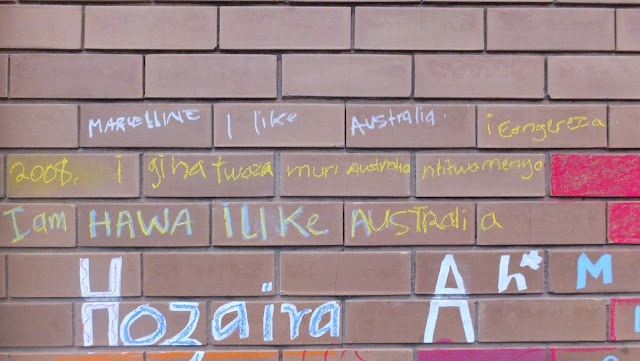 MARCELLINE I like Australia. i Eongereza
2008. i gihe twaza muri Australia ntitwamenya
I am HAWA I LIKE AUSTRALIA
Hozaira Ah M